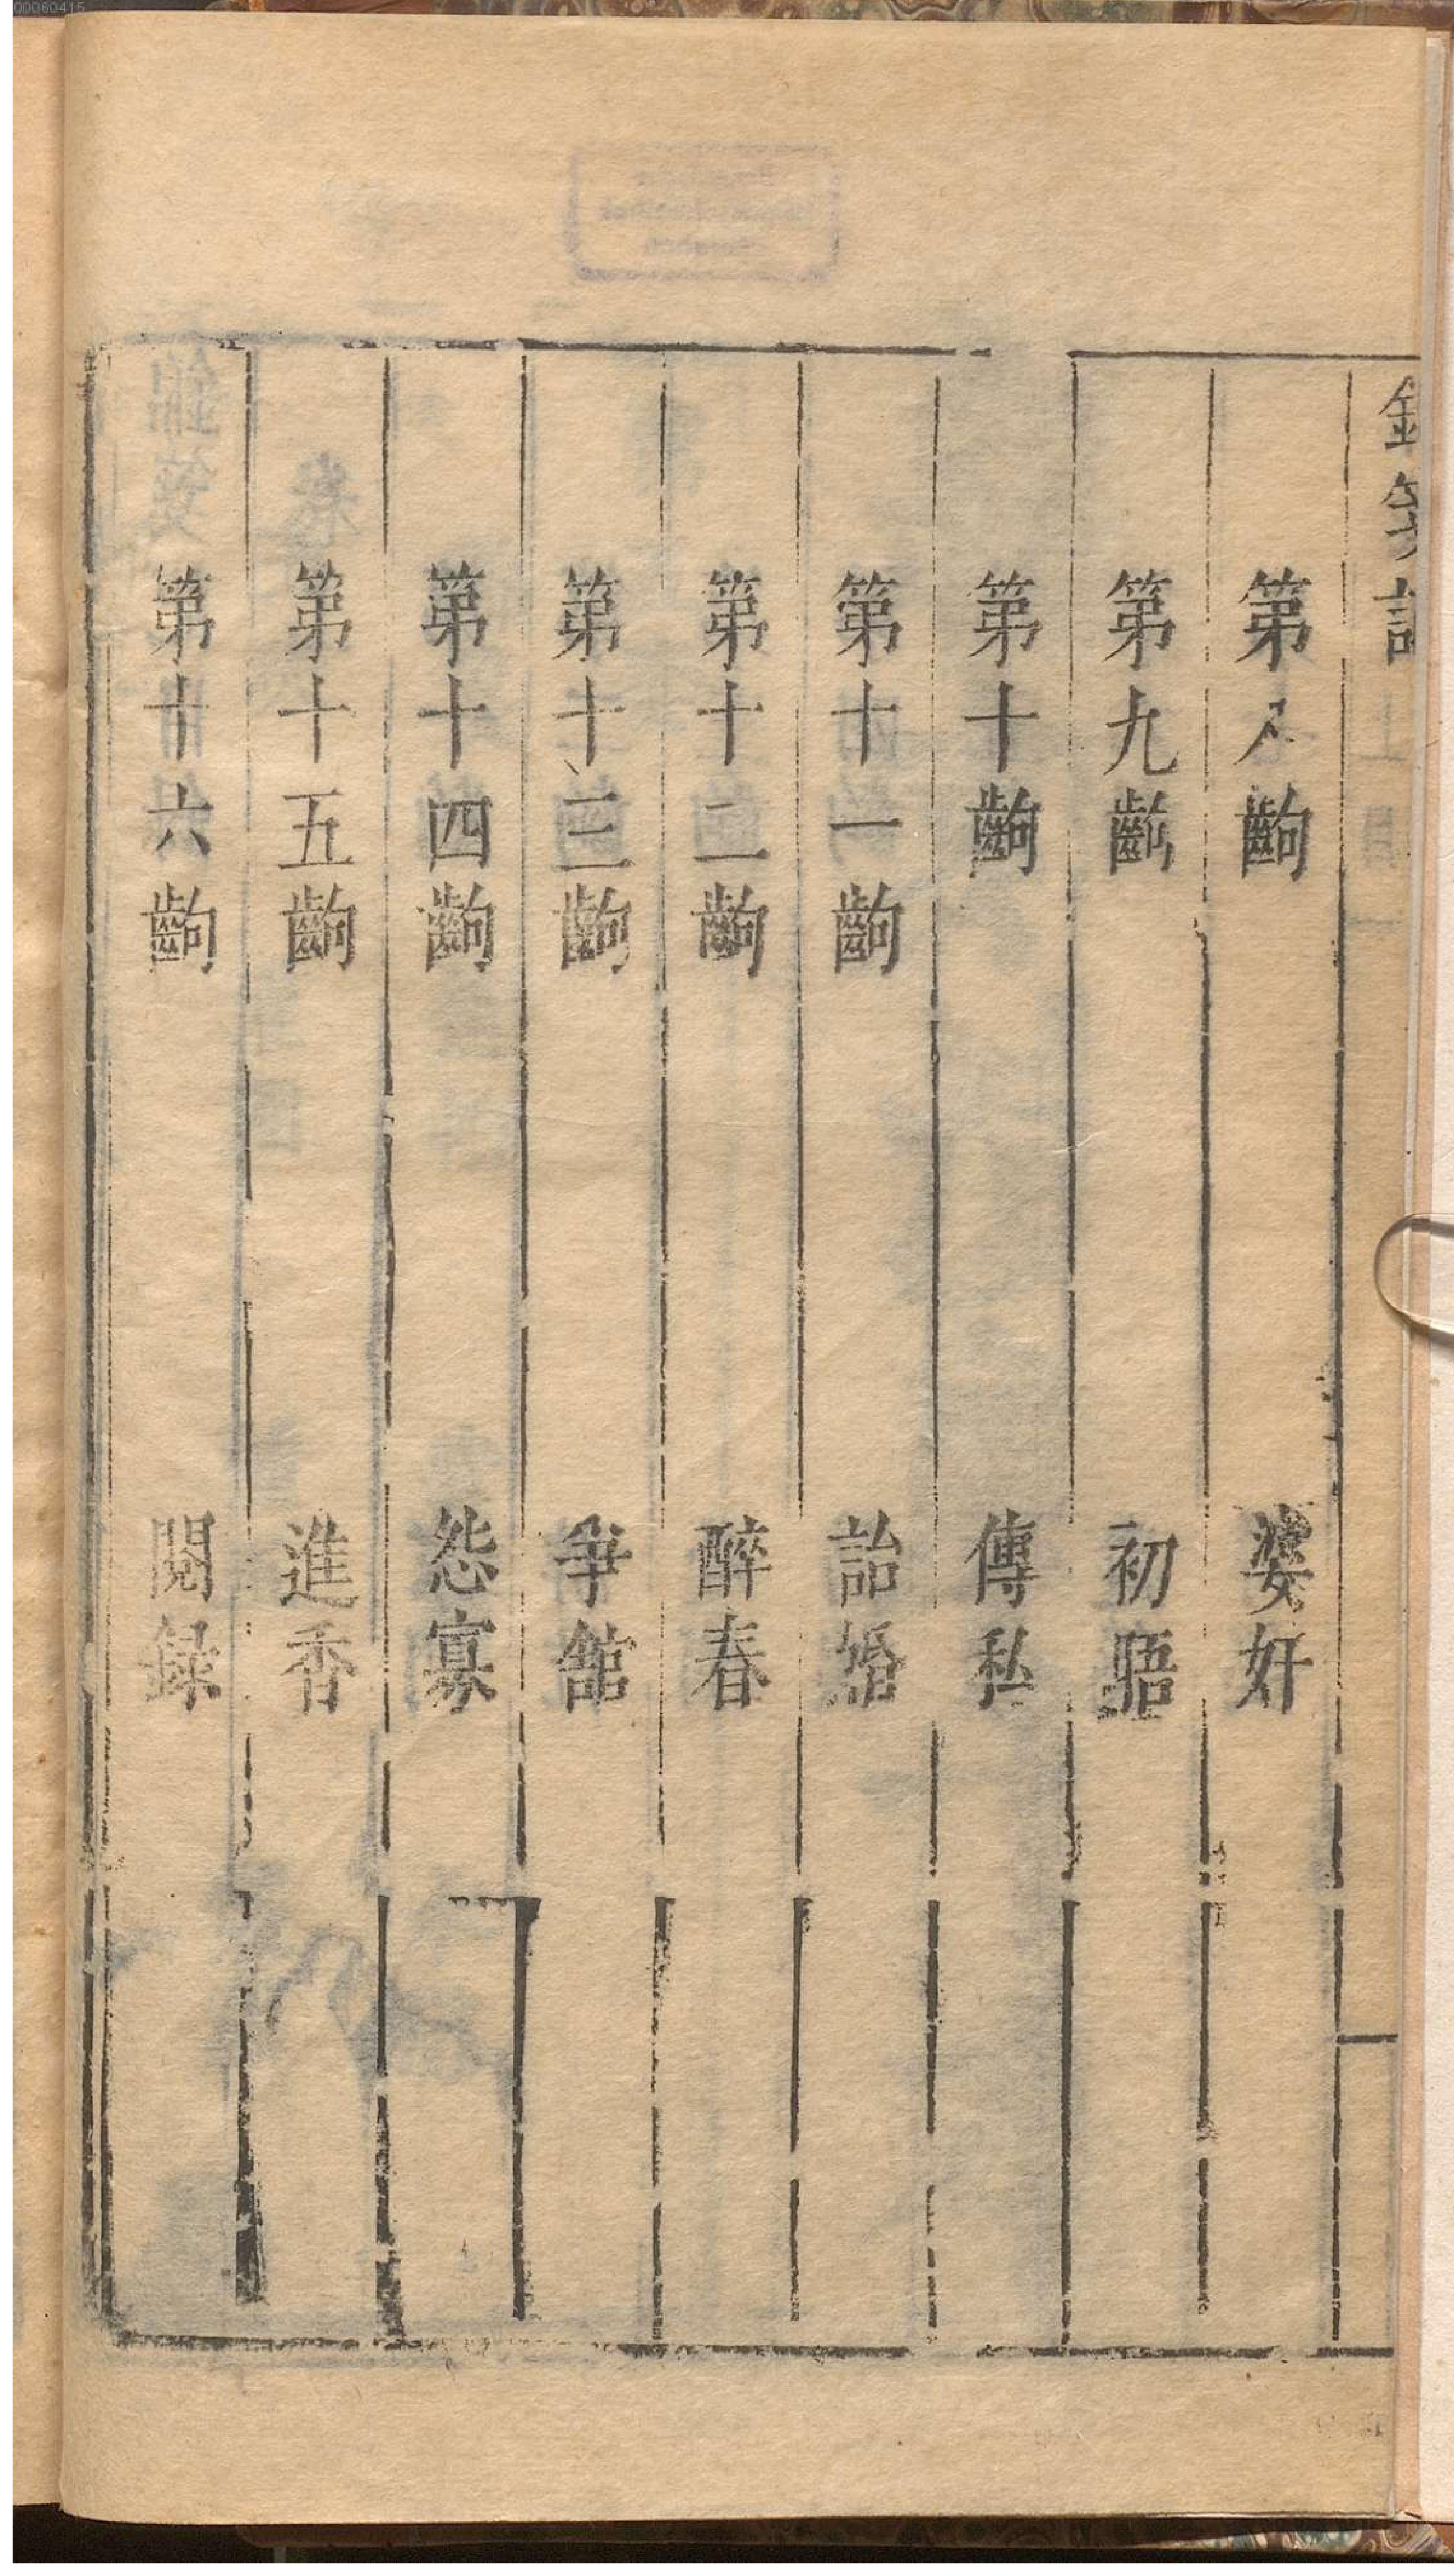 錦箋記
第八齣 婆奸
第九齣 初晤
第十齣 傳私
第十一齣 詒婚
第十二齣 醉春
第十三齣 爭館
第十四齣 怨寡
第十五齣 進香
第十六齣 閱録
00060415